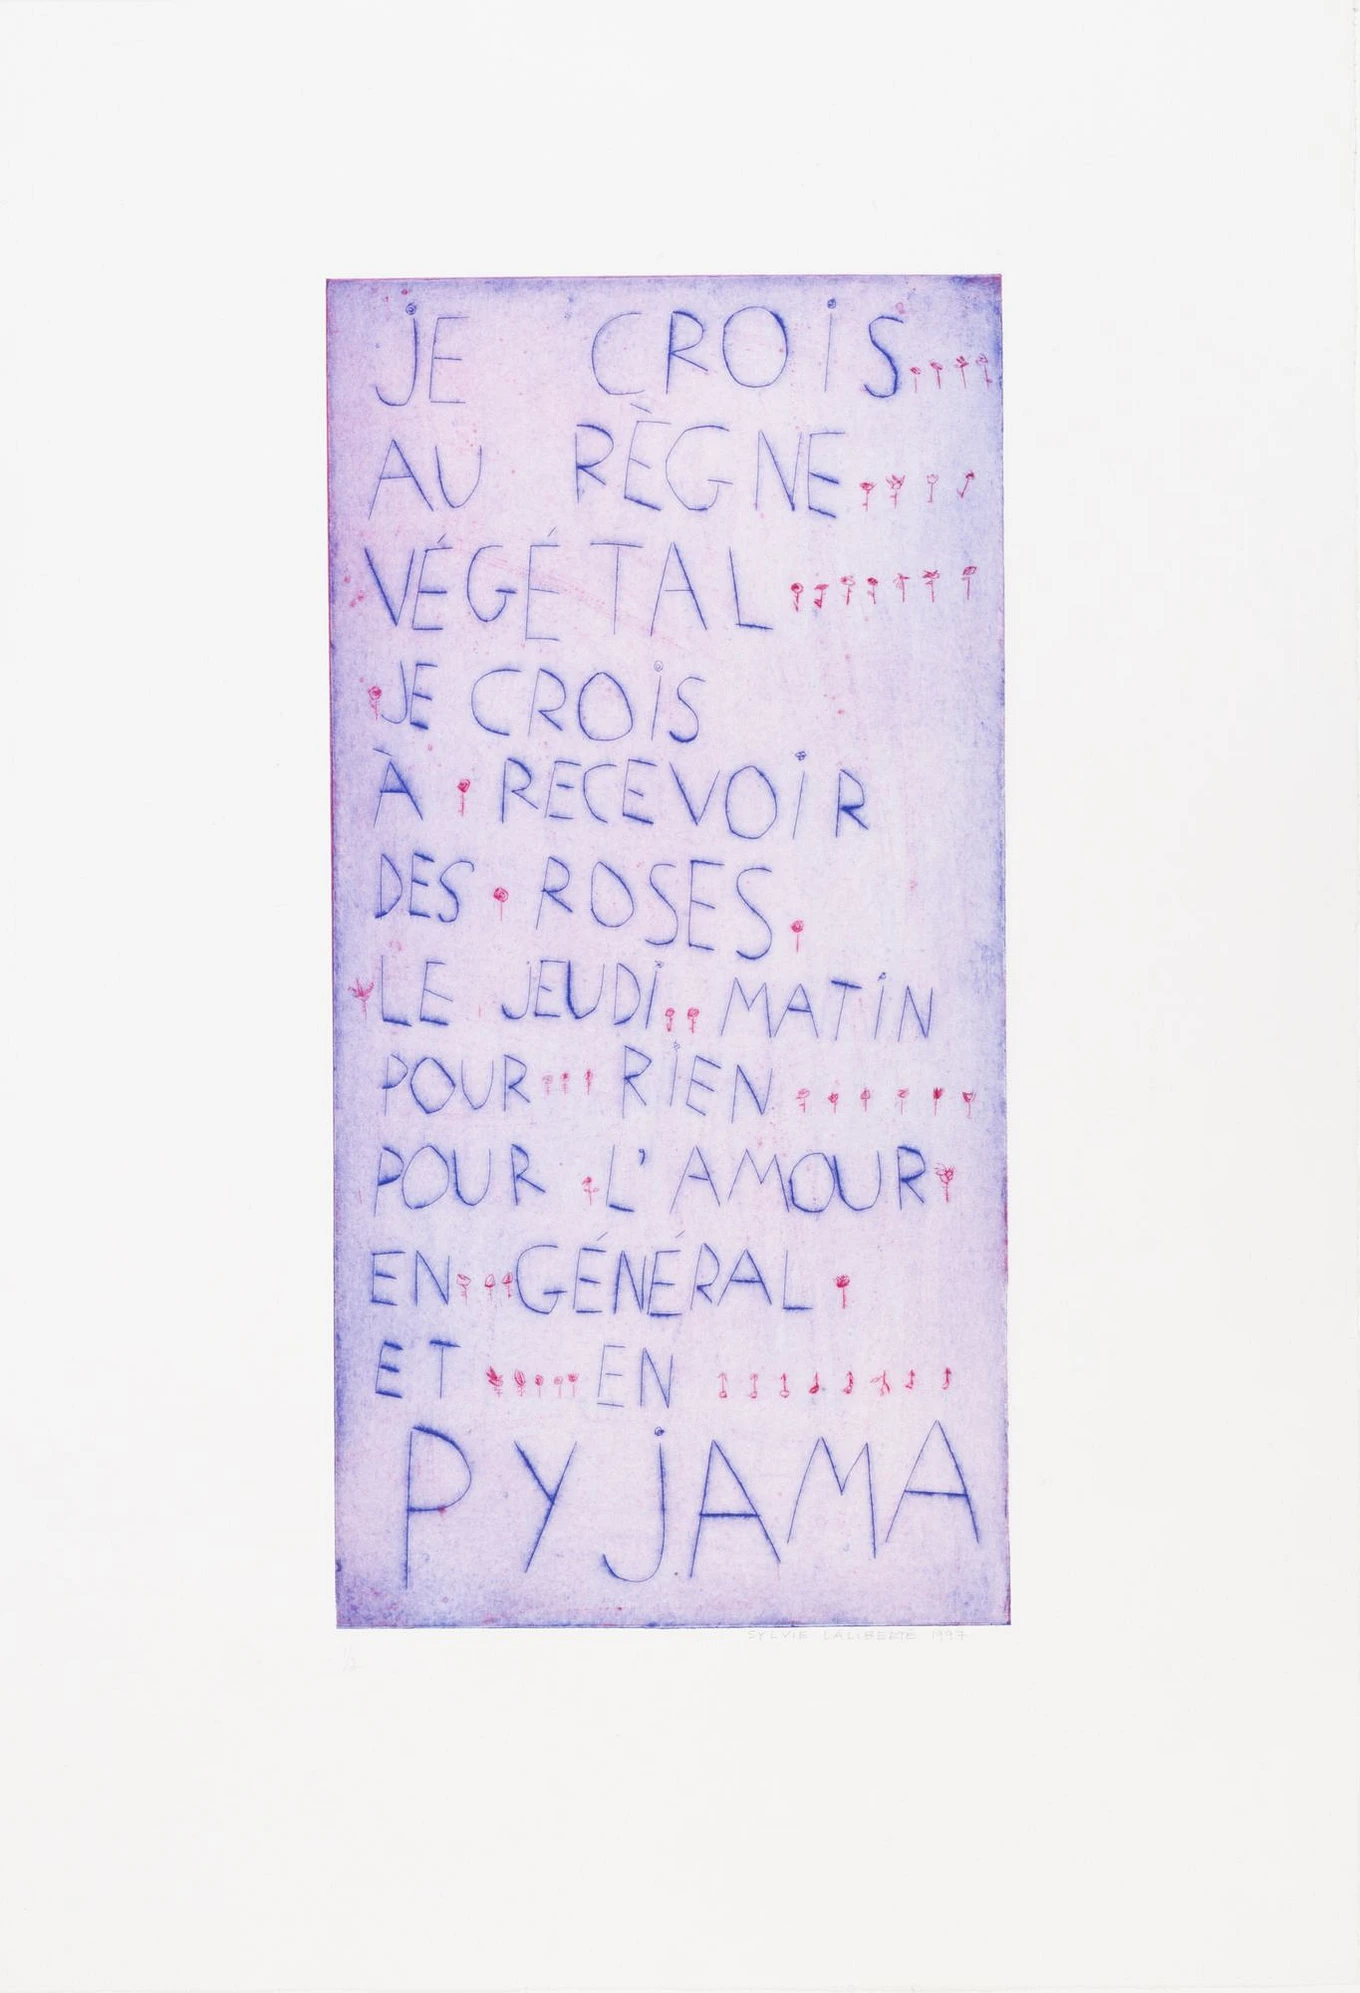 JE CROIS
AU RÈGNE
VÉGÉTAL
JE CROIS
À RECEVOIR
DES ROSES
LE JEUDI MATIN
POUR RIEN
POUR L'AMOUR
EN GÉNÉRAL
ET EN
PYJAMA
SYLVIE LALIBERTÉ 1997
1/2